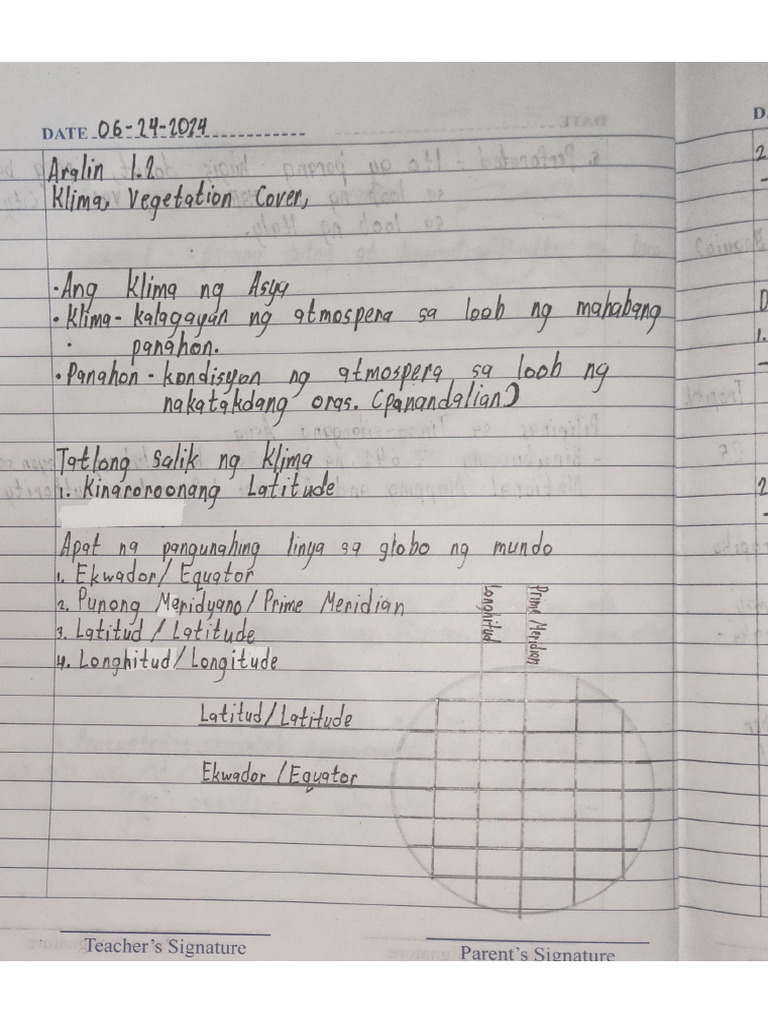 DATE 06-24-2024
Aralin 1.2
Klima, Vegetation Cover,
• Ang Klima ng Asya
• Klima - kalagayan ng atmospera sa loob ng mahabang
• panahon.
• Panahon - kondisyon ng atmospera sa loob ng
nakatakdang oras. (panandalian)
Tatlong Salik ng Klima
1. Kinaroroonang Latitude
Apat na pangunahing linya sa globo ng mundo
1. Ekwador/Equator
2. Punong Meridyano/Prime Meridian
3. Latitud/Latitude
4. Longhitud/Longitude
Longhitud
Prime Meridian
Latitud/Latitude
Ekwador/Equator
Teacher's Signature
Parent's Signature